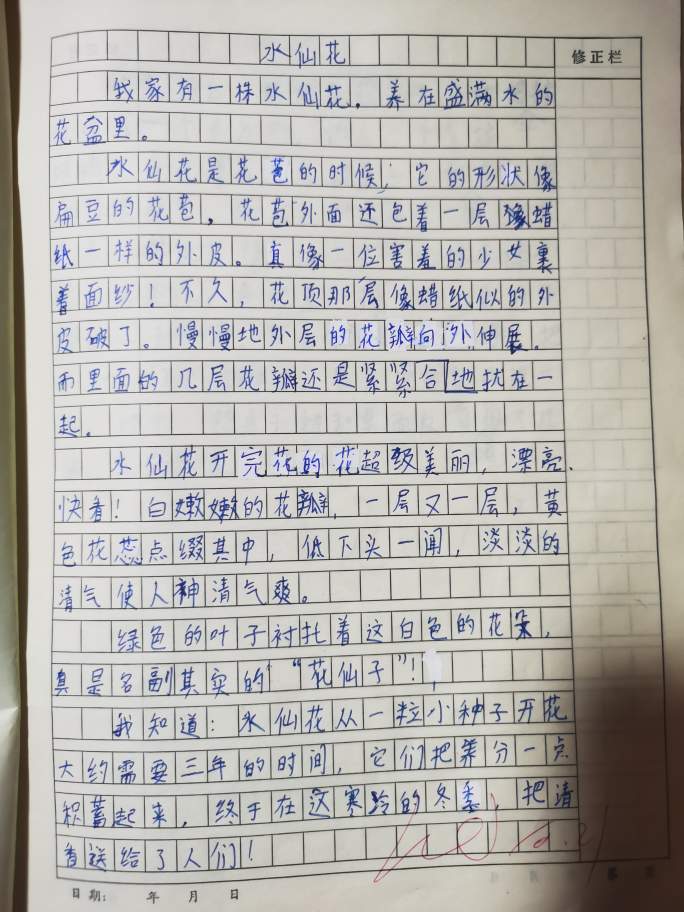 水仙花
修正栏
我家有一株水仙花，养在盛满水的
花盆里。
水仙花是花苞的时候，它的形状像
扁豆的花苞，花苞外面还包着一层像蜡
纸一样的外皮。真像一位害羞的少女裹
着面纱！不久，花顶那层像蜡纸似的外
皮破了。慢慢地外层的花瓣向外伸展，
而里面的几层花瓣还是紧紧合地扰在一
起。
水仙花开完花的花超级美丽，漂亮、
快看！白嫩嫩的花瓣，一层又一层，黄
色花蕊点缀其中，低下头一闻，淡淡的
清气使人神清气爽。
绿色的叶子衬托着这白色的花朵，
真是名副其实的“花仙子”！
我知道：水仙花从一粒小种子开花
大约需要三年的时间，它们把养分一点
积蓄起来，终于在这寒冷的冬季，把清
香送给了人们！
日期： 年 月 日